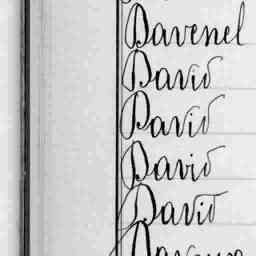 Davenel
David
David
David
David